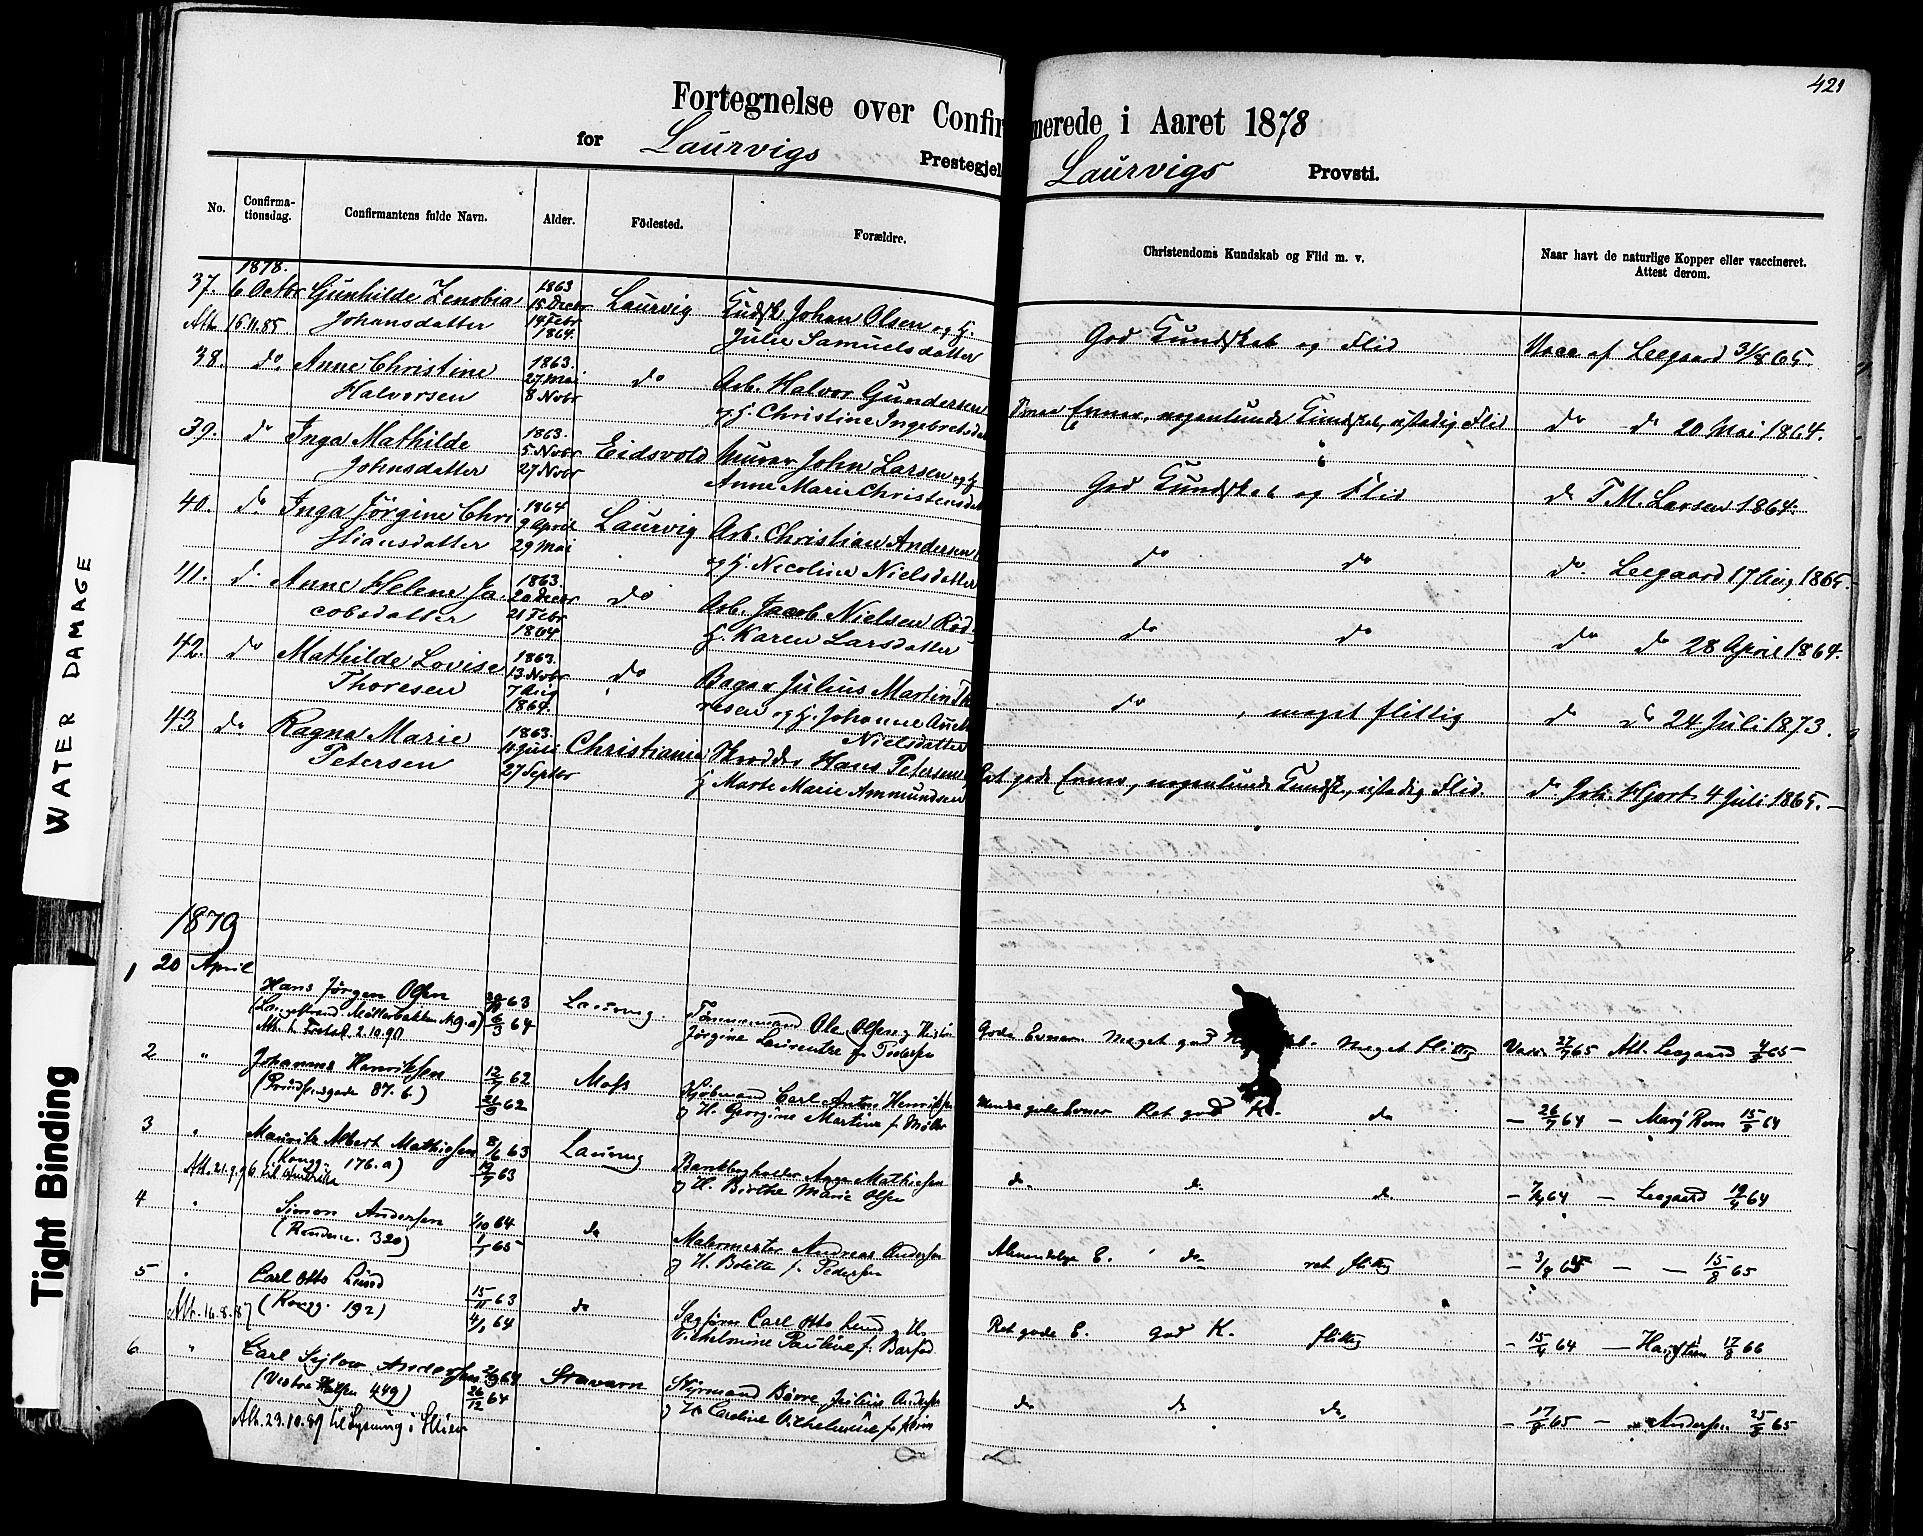 421
Fortegnelse over Confirmerede i Aaret 1878
for Laurvigs Prestegjel Laurvigs Provsti.
No. Confirma-tionsdag. Confirmantens fulde Navn. Alder. Födested. Forældre. Christendoms Kundskab og Flid m. v. Naar havt de naturlige Kopper eller vaccineret. Attest derom.
1878.
37. 6 Octbr Gunhilde Zenobia 1863 15 Decbr Laurvig Kudsk Johan Olsen og H. God Kundskab og Flid Vacc af Leegaard 31/8 65.
Att. 16.11.85 Johansdatter 14 Febr 1864. Julie Samuelsdatter
38. do Anne Christine 1863. 27 Mai do Arb. Halvor Gundersen Evner, nogenlunde Kundskab, ustadig Flid do do 20 Mai 1864.
Halvorsen 8 Novbr og H. Christine Ingebretsda
39. do Inga Mathilde 1863. 5 Novbr Eidsvold Murer John Larsen og H. God Kundskab og Flid do T. M. Larsen 1864.
Johnsdatter 27 Novbr Anne Marie Christensda
40. do Inga Jørgine Chri 1864 9 April Laurvig Arb. Christian Andersen do do do Leegaard 17 Aug 1865.
stiansdatter 29 Mai og H. Nicoline Nielsdatter
41. do Anne Helene Ja 1863. 20 Decbr do Arb. Jacob Nielsen Rød do do do do 28 April 1864.
cobsdatter 21 Febr 1864 H. Karen Larsdatter
42. do Mathilde Lovise 1863. 13 Novbr do Bager Julius Martin Th do , meget flittig do do 24 Juli 1873.
Thoresen 7 Aug 1864. resen og H. Johanne
Nielsdatter
43 do Ragna Marie 1863. Juli Christiania Skrædder Hans Petersen Ret gode Evner, nogenlunde Kundsk, ustadig Flid. do Joh. Hjort 4 Juli 1865.
Petersen 27 Septbr H Marte Marie Ammundsen
1879
20 April
1 Hans Jørgen Olsen 63 Laurvig Tømmermand Ole Olsen og Hustru Gode Evner. Meget god Meget flittig Vacc. 27/7 65 Att. Leegaard 65
(Langestrand Møllerbakken 9.a) 6/3 64 Jørgine Laurentze f. Pedersen
Att. t. 2.10.90
2 " Johannes Henriksen 12/7 62 Moss Kjøbmand Carl Anton Henriksen gode Evner Ret god K. do - 26/7 64 - 15/8 64
(Prindsensgade 87. b.) 21/9 62 og H. Georgine Martine f. Møller
3 " Mauritz Albert Mathiesen 8/6 63 Laurvig Bankbogholder Mathiesen do do do - 64 - Leegaard 64
(Kongg. 176. a) 19/7 63 og H. Birthe Marie Olsen
Att. 21.9.96 til Amerika
4 " Simon Andersen 1/10 64 do Malermester Andreas Andersen Almindelige E. do ret flittig - - - 15/8 65
(320) 1/1 65 og H. Bolette f. Pedersen
5 " Carl Otto Lund 15/11 63 do Sagfører Carl Otto Lund og H. Ret gode E. god K. flittig - 15/4 64 - 17/8 66
Att. 16.8.87 (Kongg. 192) 64 Vilhelmine Pauline f. Barfod
6 " Carl Andersen 64 Stavern Styrmand Børre Julius Andersen do do do - 17/8 65 - Andersen 25/8 65
(Vestre Halsen 449) 26/12 64 og H. Caroline Vilhelmine f.
Att. 23.10.89 til Lysning i Skien
WATER DAMAGE
Tight Binding